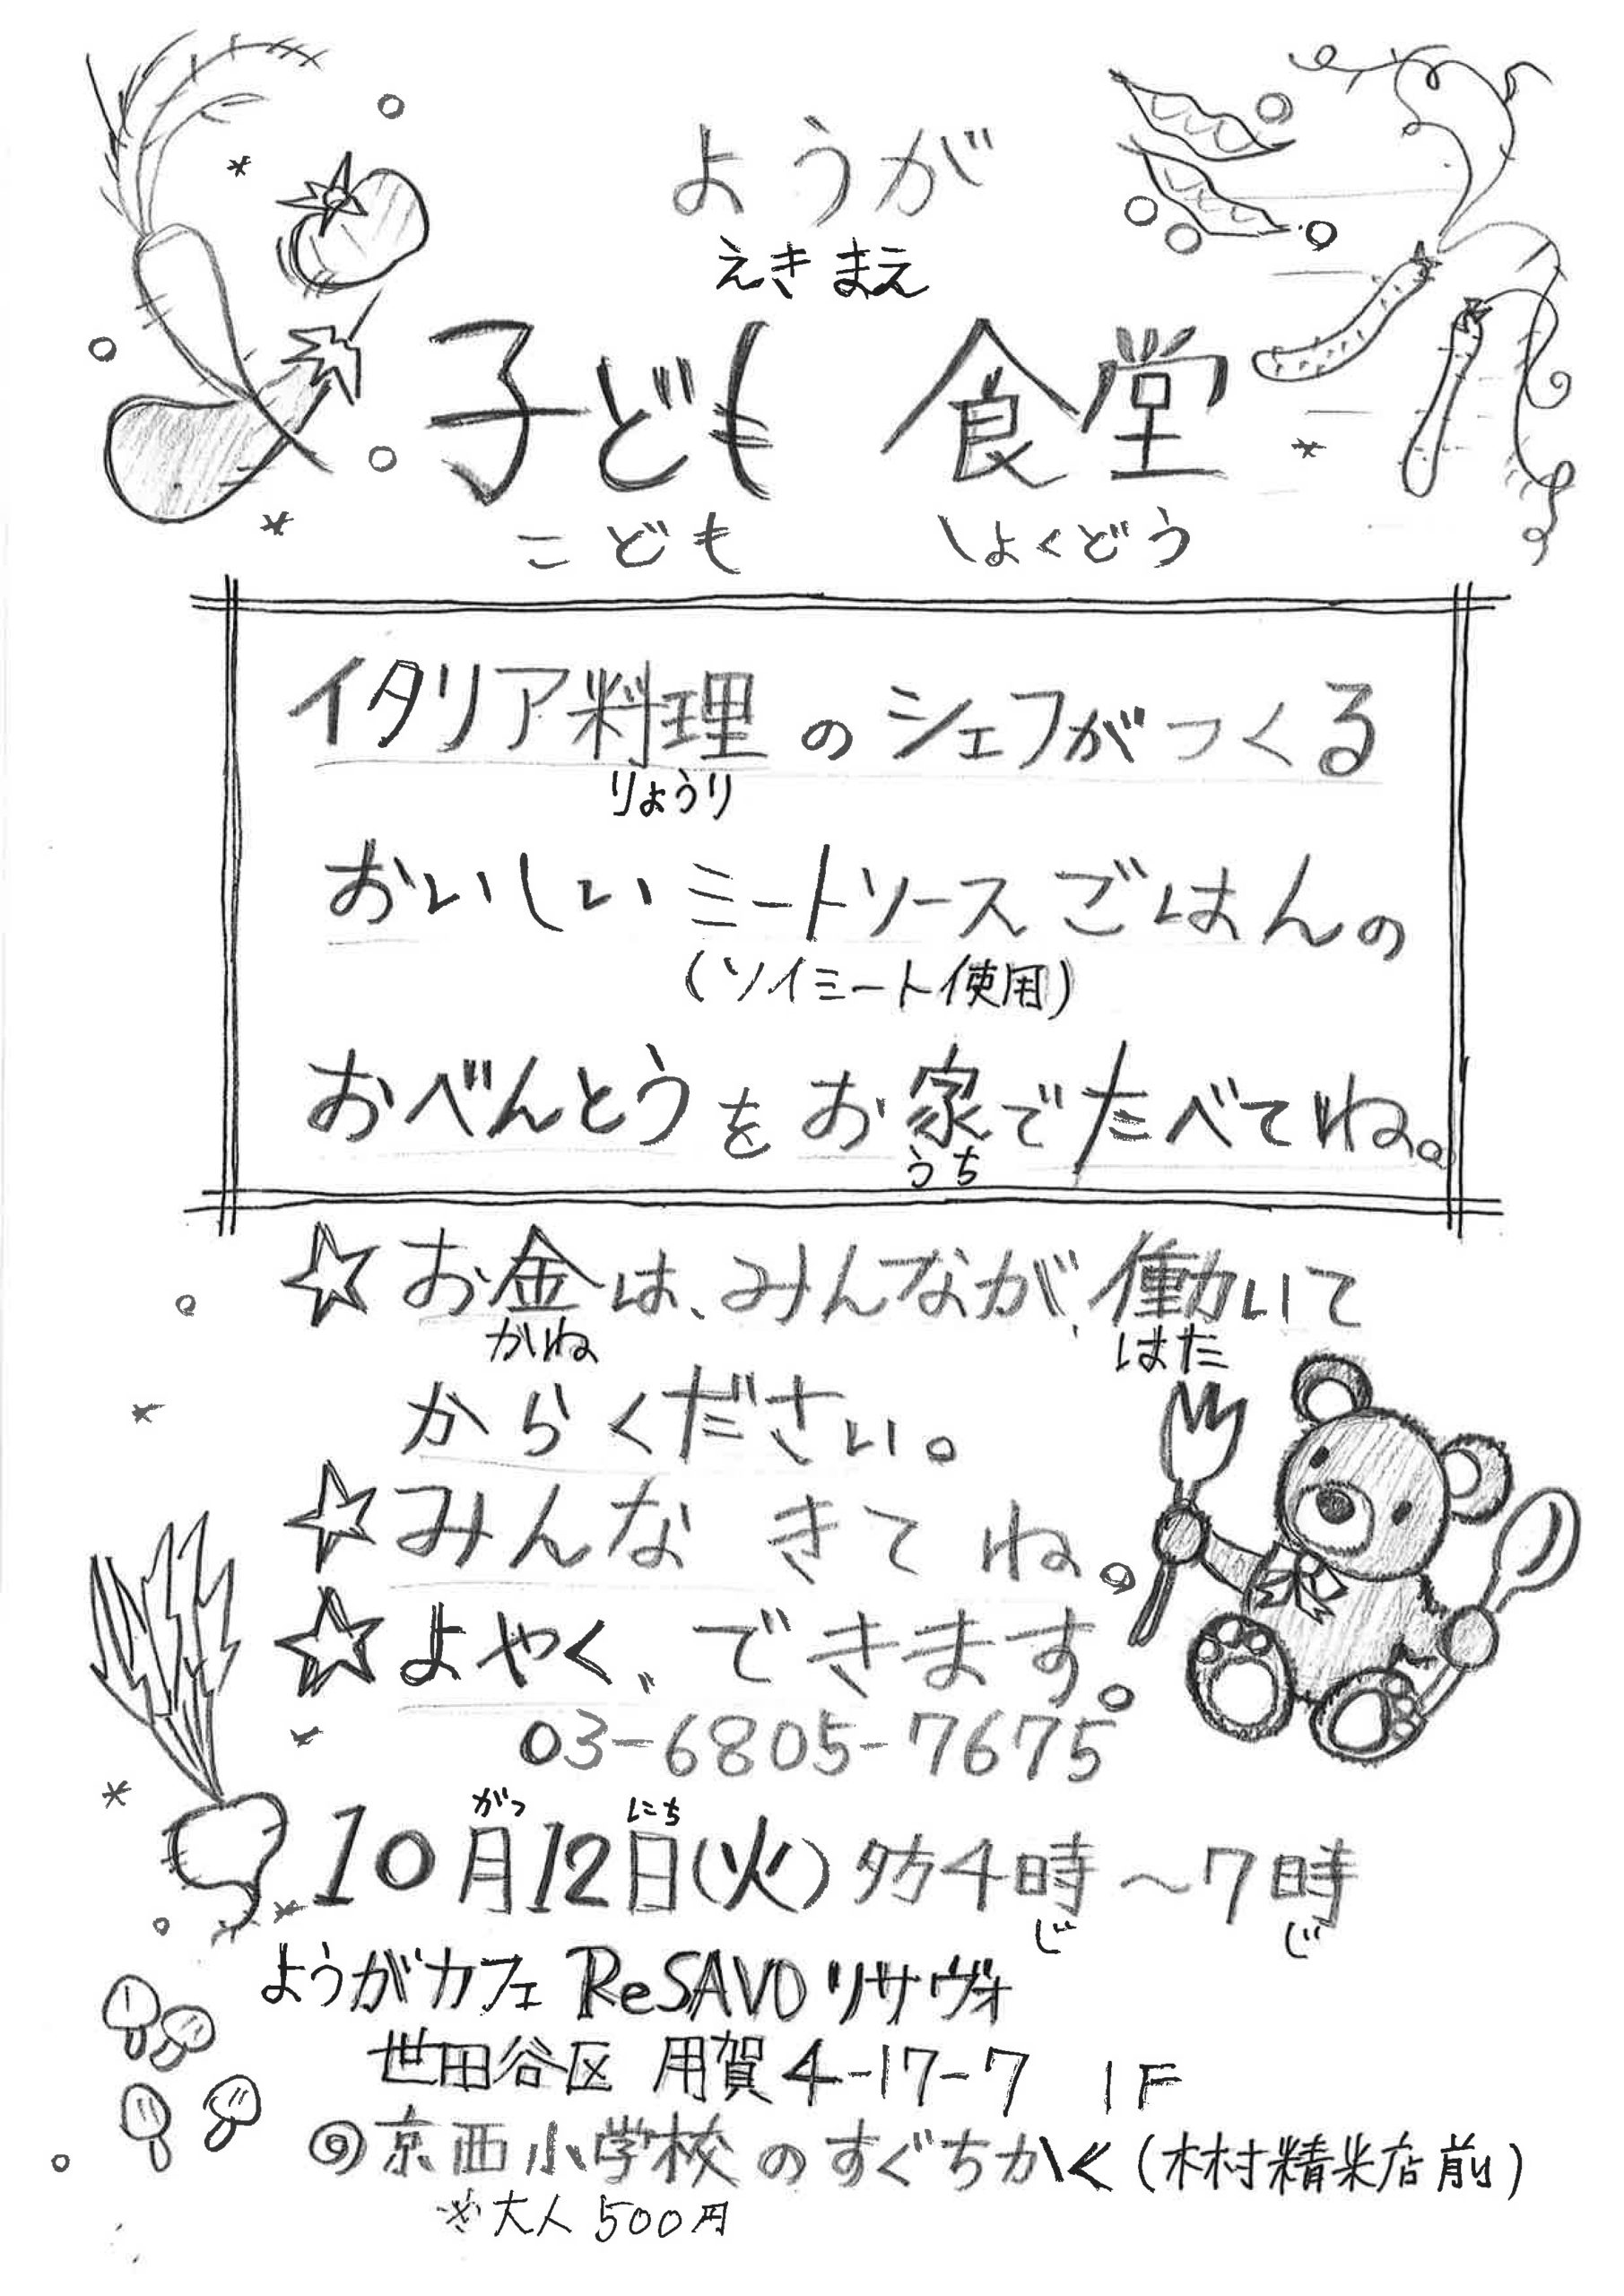 ようが
えきまえ
子ども 食堂
こども しょくどう
イタリア料理のシェフがつくる
りょうり
おいしいミートソースごはんの
(ソイミート使用)
おべんとうをお家でたべてね。
うち
☆お金は、みんなが、働いて
かね はた
からください。
☆みんな きてね。
☆よやく、できます。
03-6805-7675
がつ にち
10月12日(火)夕方4時〜7時
じ じ
ようがカフェ ReSAVO リサヴォ
世田谷区 用賀4-17-7 1F
◎京西小学校のすぐちかく(木村精米店前)
※大人500円